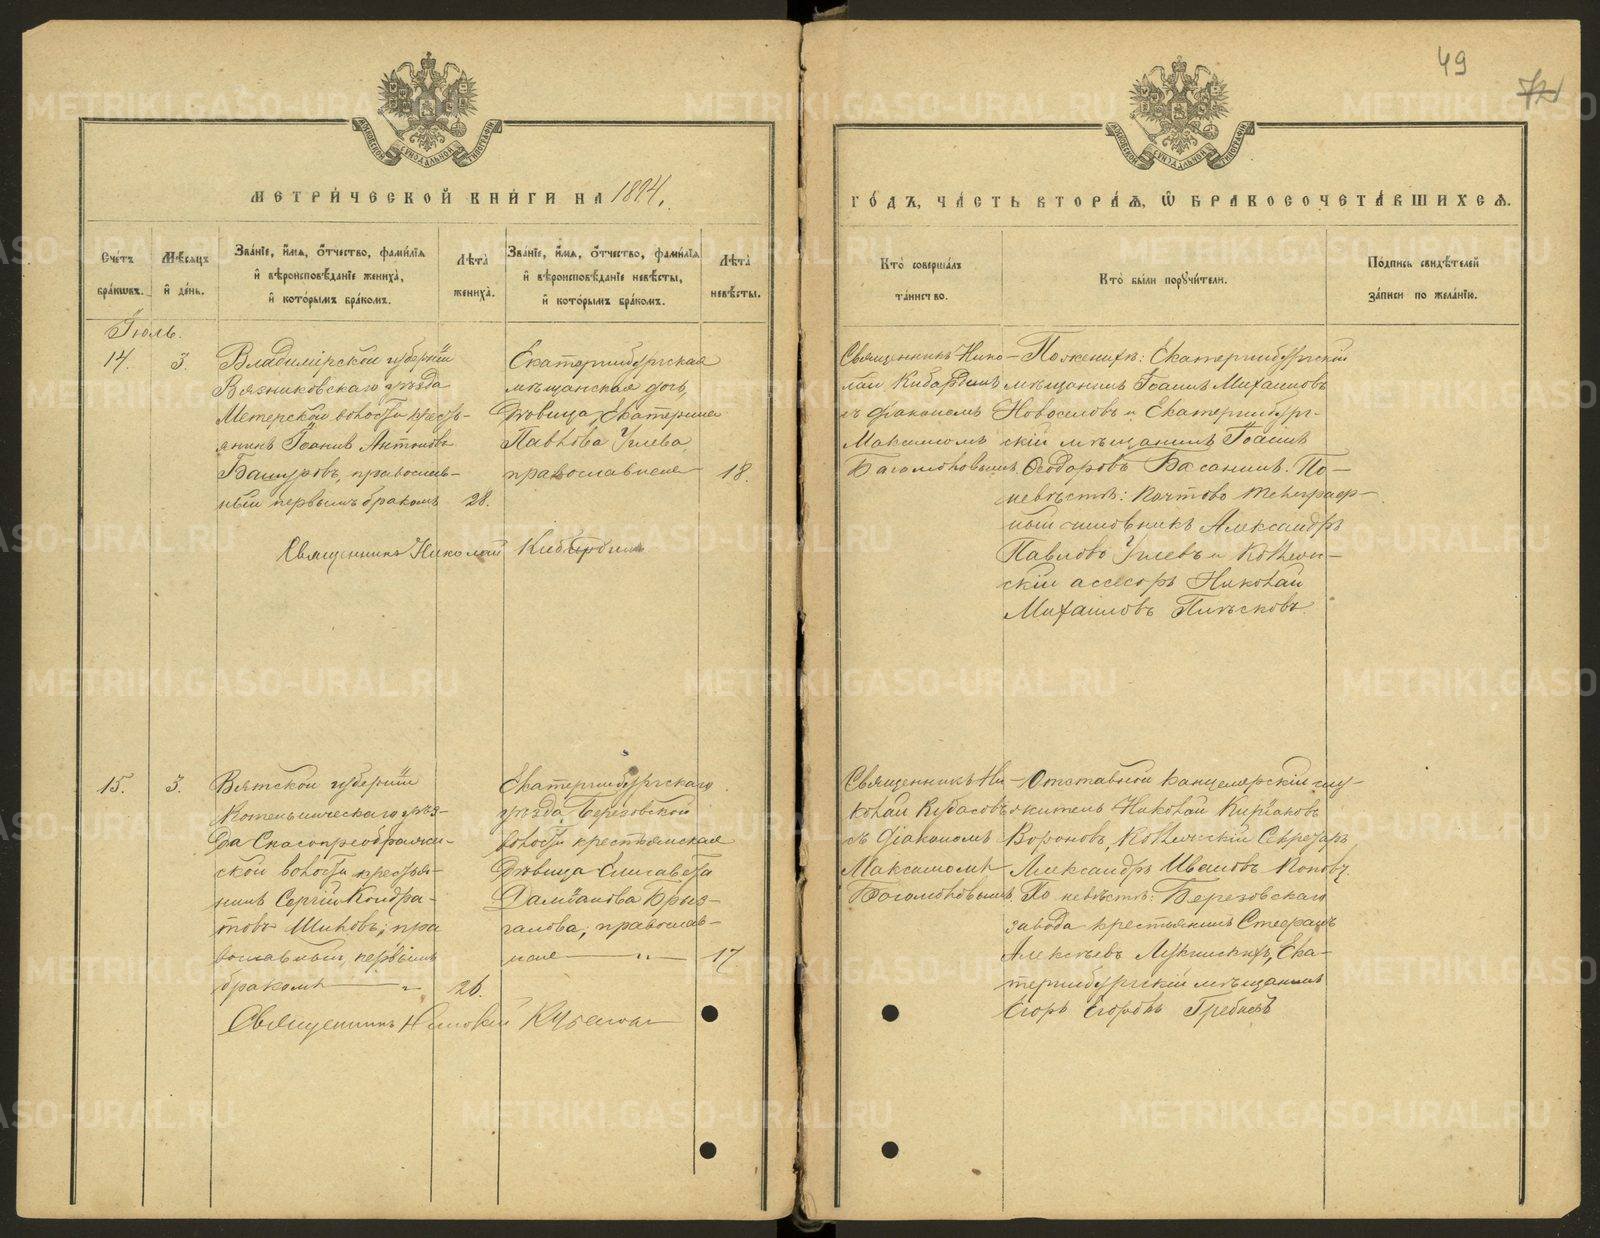 49
МОСКОВСКОЙ СѴНОДАЛЬНОЙ ТИПОГРАФІИ
МОСКОВСКОЙ СѴНОДАЛЬНОЙ ТИПОГРАФІИ
МЕТРИ́ЧЕСКОЙ КНИ́ГИ НА 1894.
ГО́ДЪ, ЧА́СТЬ ВТОРА́Я, Ѡ БРАКОСОЧЕТА́ВШИХСЯ.
Сче́тъ бра́кѡвъ.
Мѣ́сяцъ и́ де́нь.
Зва́ніе, и́мя, ѻ́тчество, фами́лія
и́ вѣроисповѣ́даніе жениха́,
и́ кото́рымъ бра́комъ.
Лѣ́та жениха́.
Зва́ніе, и́мя, ѻ́тчество, фами́лія
и́ вѣроисповѣ́даніе невѣ́сты,
и́ кото́рымъ бра́комъ.
Лѣ́та невѣ́сты.
Кто̀ соверша́лъ
та́инство.
Кто̀ бы́ли поручи́тели.
По́дпись свидѣ́телей
за́писи по жела́нію.
Іюль.
14.
3.
Владимірской губерніи
Вязниковскаго уѣзда
Мстерской волости кресть-
янинъ Іоаннъ Антоновъ
православ-
ный первымъ бракомъ
28.
Екатеринбургская
мѣщанская дочь,
дѣвица Екатерина
Павлова Углева,
православная
18.
Священникъ Нико-
лай Кибардинъ
съ діакономъ
Максимомъ
Богомоловымъ
По женихѣ: Екатеринбургскій
мѣщанинъ Іоаннъ Михаиловъ
Новоселовъ и Екатеринбург-
скій мѣщанинъ Іоаннъ
Ѳеодоровъ Басанинъ. По
невѣстѣ: Почтово телеграф-
ный чиновникъ Александръ
Павловъ Углевъ и Коллеж-
скій ассесоръ Николай
Михаиловъ
Священникъ Николай Кибардинъ
15.
3.
Вятской губерніи
Котельническаго уѣз-
да Спасопреображен-
ской волости крестья-
нинъ Сергій Кондра-
товъ Шиховъ, пра
вославный, первымъ
бракомъ — „
26.
Екатеринбургскаго
уѣзда, Березовской
волости крестьянская
дѣвица Елисавета
Даміанова Брыз-
галова, православ-
ная — „
17.
Священникъ Ни-
колай Кубасовъ
съ діакономъ
Максимомъ
Богомоловымъ
Отставной канцелярскій слу-
житель Николай Киріаковъ
Вороновъ, Коллежскій Секретарь
Александръ Ивановъ Поповъ,
По невѣстѣ: Березовскаго
завода крестьянинъ Стефанъ
Алексѣевъ Лукинскихъ, Ека-
теринбургскій мѣщанинъ
Егоръ Егоровъ Гребневъ
Священникъ Николай Кубасовъ
METRIKI.GASO-URAL.RU